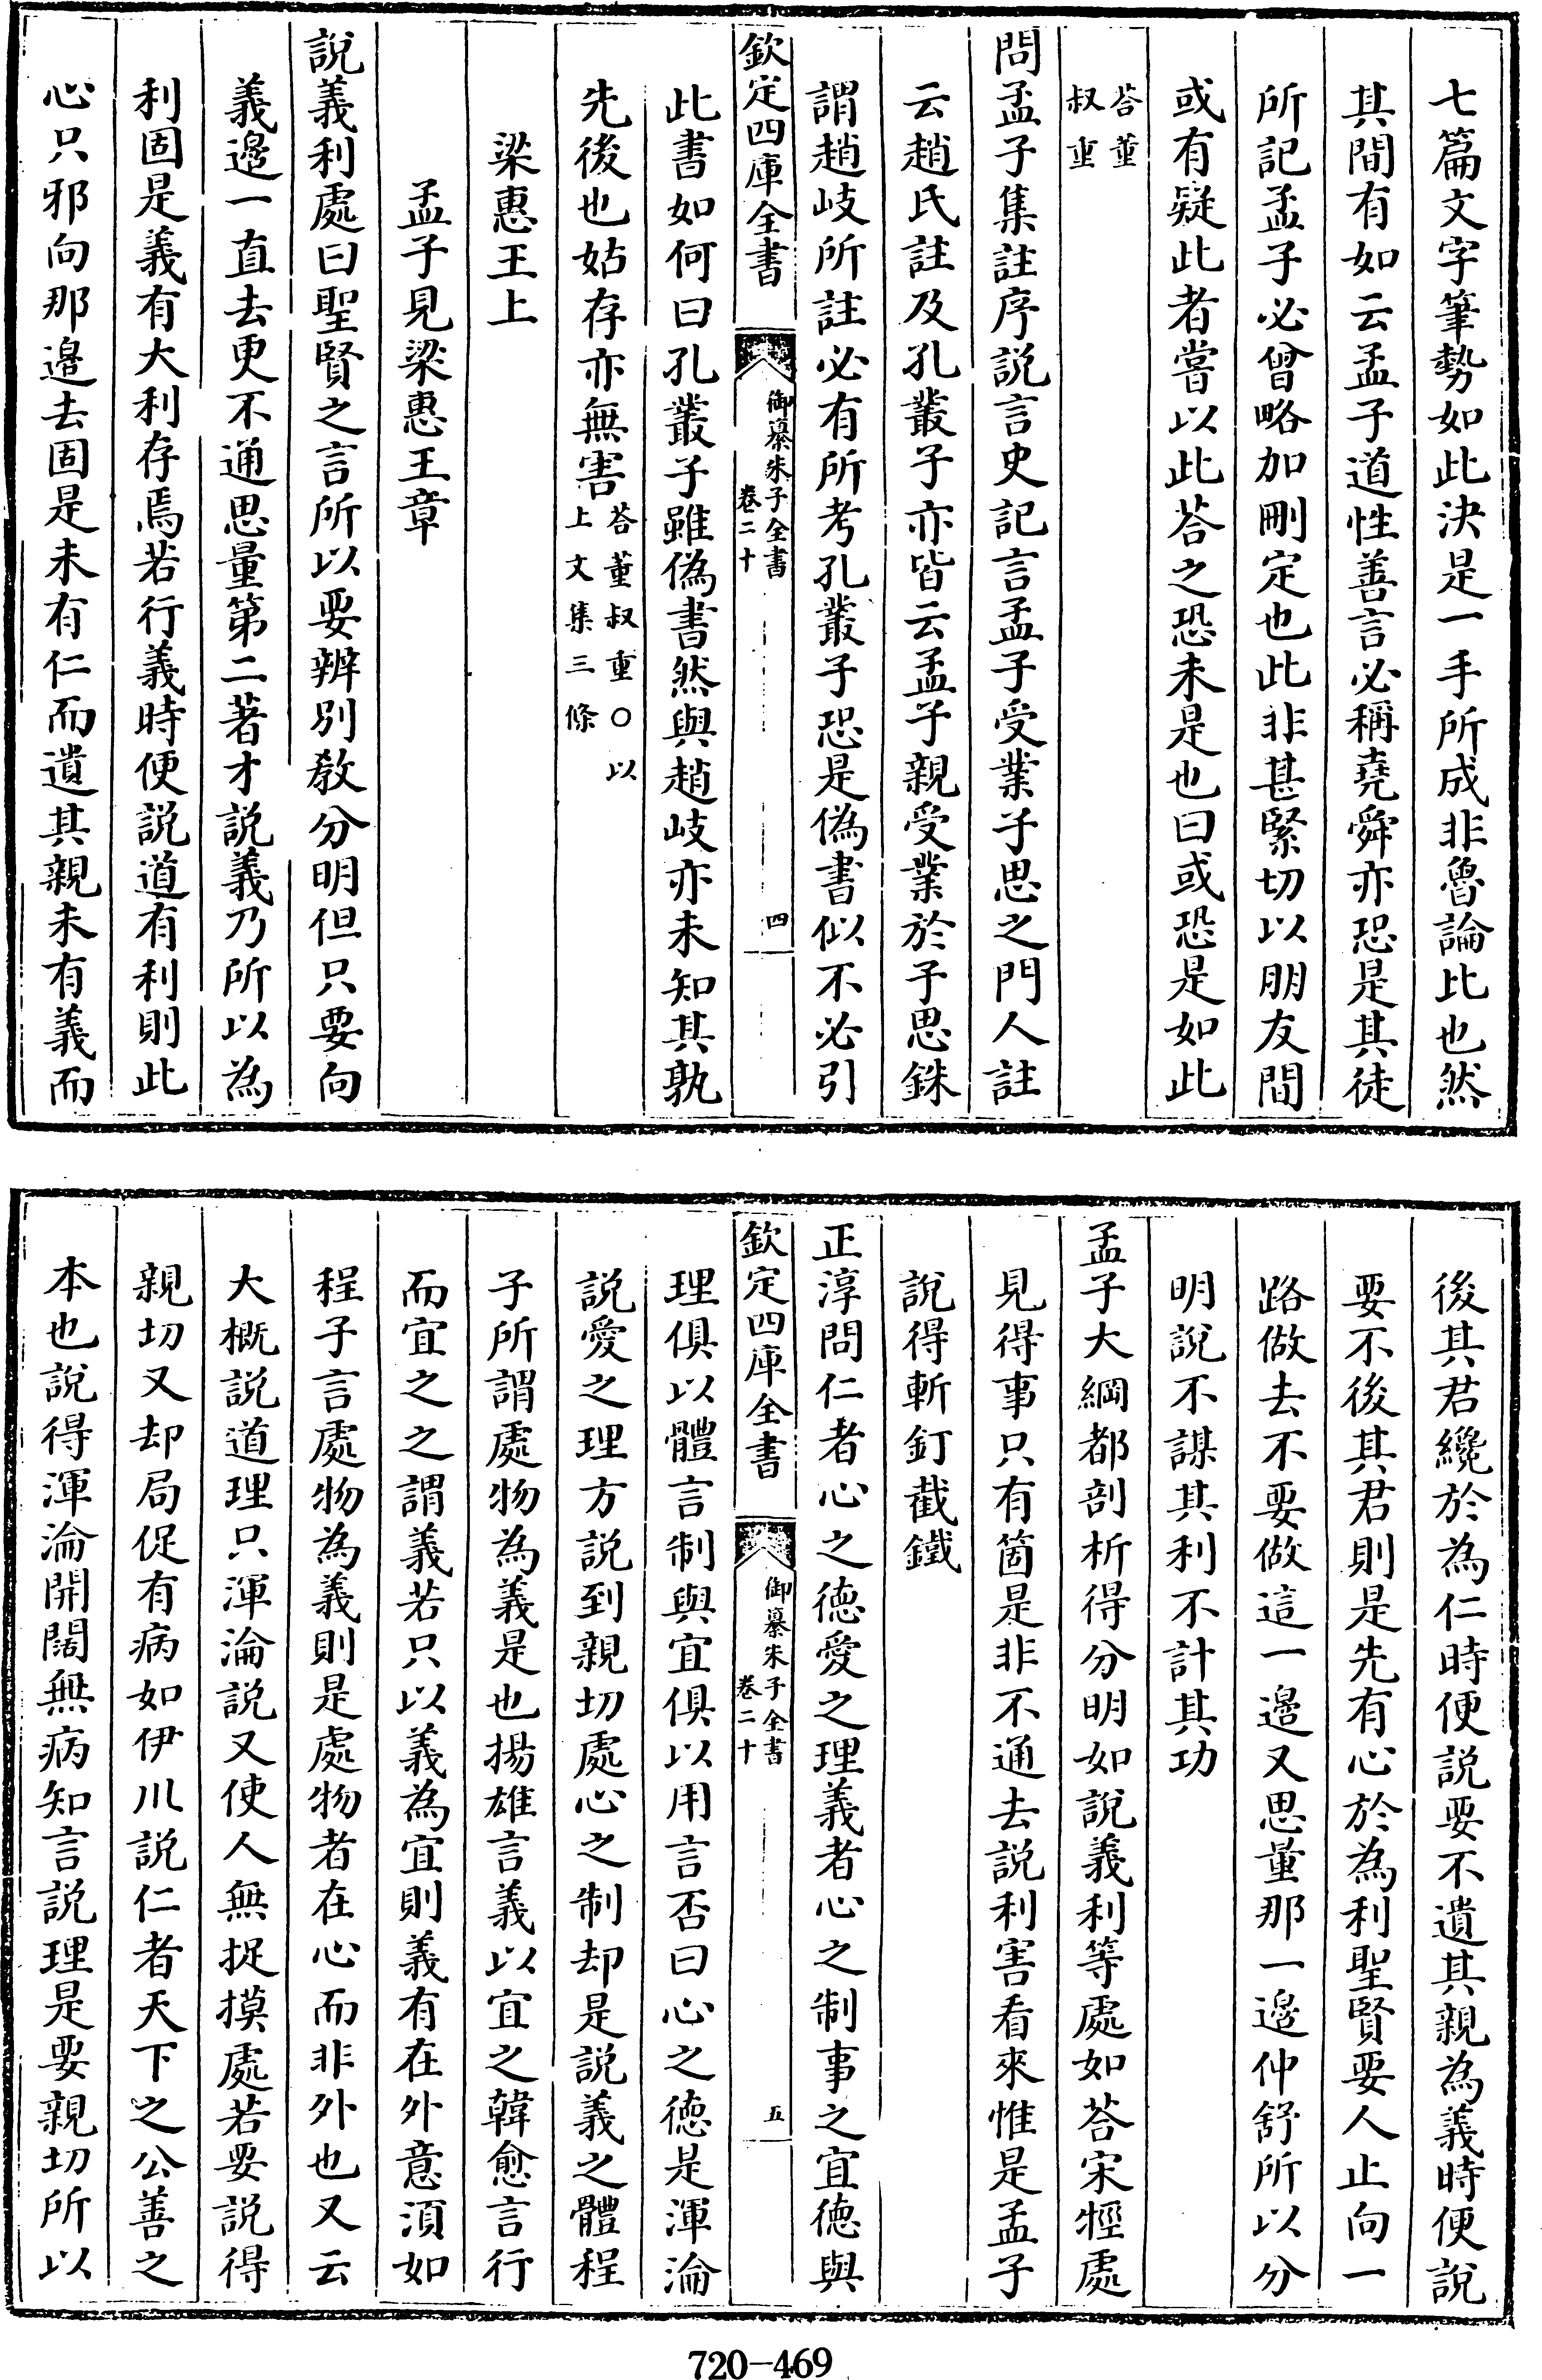 七篇文字筆勢如此決是一手所成非魯論比也然
其間有如云孟子道性善言必稱堯舜亦恐是其徒
所記孟子必曾略加刪定也此非甚緊切以朋友間
或有疑此者嘗以此荅之恐未是也曰或恐是如此
荅董
叔重
問孟子集註序說言史記言孟子受業子思之門人註
云趙氏註及孔叢子亦皆云孟子親受業於子思銖
謂趙岐所註必有所考孔叢子恐是偽書似不必引
欽定四庫全書
御纂朱子全書
卷二十
四
此書如何曰孔叢子雖偽書然與趙岐亦未知其孰
先後也姑存亦無害
荅董叔重○以
上文集三條
梁惠王上
孟子見梁惠王章
說義利處曰聖賢之言所以要辨別教分明但只要向
義邊一直去更不通思量第二著才說義乃所以為
利固是義有大利存焉若行義時便說道有利則此
心只邪向那邊去固是未有仁而遺其親未有義而
後其君纔於為仁時便說要不遺其親為義時便說
要不後其君則是先有心於為利聖賢要人止向一
路做去不要做這一邊又思量那一邊仲舒所以分
明說不謀其利不計其功
孟子大綱都剖析得分明如說義利等處如荅宋牼處
見得事只有箇是非不通去說利害看來惟是孟子
說得斬釘截鐵
正淳問仁者心之德愛之理義者心之制事之宜德與
欽定四庫全書
御纂朱子全書
卷二十
五
理俱以體言制與宜俱以用言否曰心之德是渾淪
說愛之理方說到親切處心之制却是說義之體程
子所謂處物為義是也揚雄言義以宜之韓愈言行
而宜之之謂義若只以義為宜則義有在外意須如
程子言處物為義則是處物者在心而非外也又云
大概說道理只渾淪說又使人無捉摸處若要說得
親切又却局促有病如伊川說仁者天下之公善之
本也說得渾淪開闊無病知言說理是要親切所以
720-469